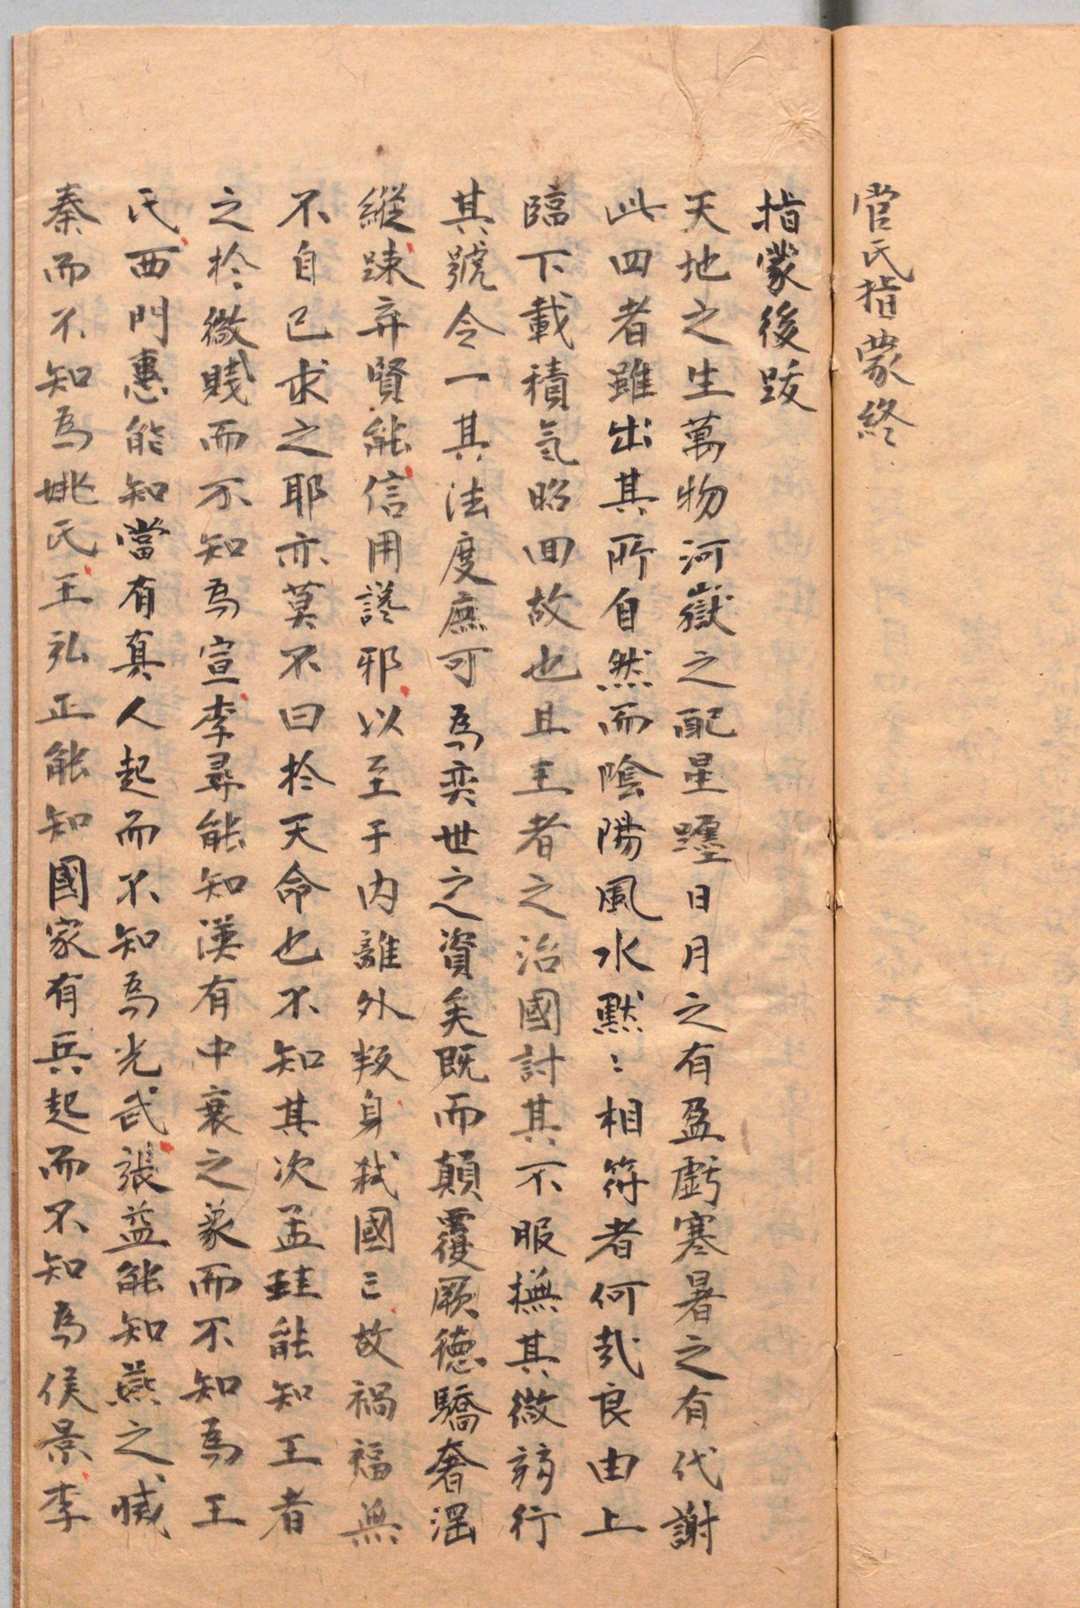 管氏指蒙終
指蒙後跋
天地之生萬物河嶽之配星躔日月之有盈虧寒暑之有代謝
此四者雖出其所自然而陰陽風水默〻相符者何哉良由上
臨下載積氣昭回故也且王者之治國討其不服撫其微弱行
其號令一其法度庶可為奕世之資矣既而顛覆厥德驕奢淫
縱踈弃賢能信用讒邪以至于内離外叛身弒國亡故禍福無
不自己求之耶亦莫不曰於天命也不知其次孟珪能知王者
之於微賤而不知為宣李尋能知漢有中衰之象而不知為王
氏西門惠能知當有真人起而不知為光武張益能知燕之滅
秦而不知為姚氏王弘正能知國家有兵起而不知為侯景李